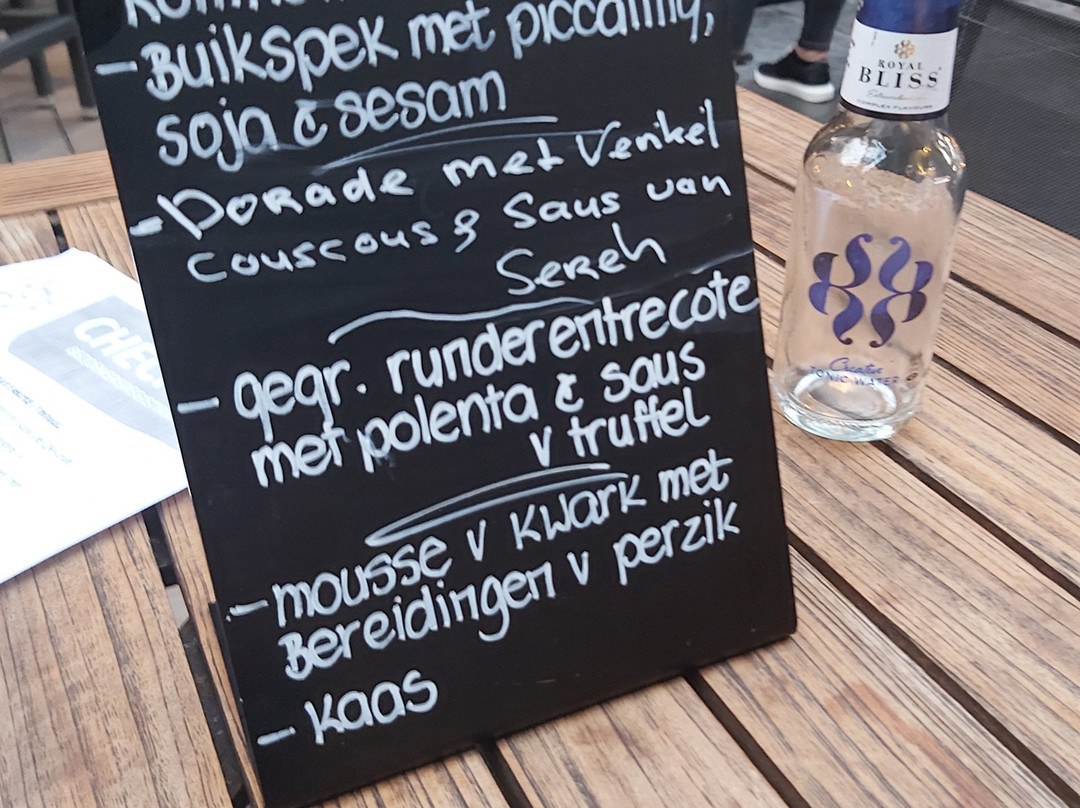 - Buikspek met piccalilly,
soja & sesam
- Dorade met Venkel
couscous & Saus van
Sereh
- gegr. runderentrecote
met polenta & saus
v truffel
- mousse v kwark met
Bereidingen v perzik
- kaas
ROYAL
BLISS
COMPLEX FLAVOURS
Creative
TONIC WATER
CHEC